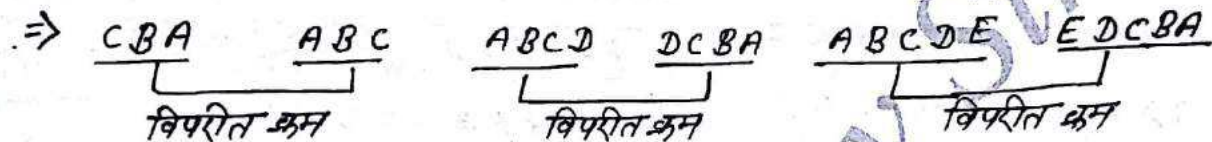 ⇒ CBA ABC ABCD DCBA ABCDE EDCBA
विपरीत क्रम विपरीत क्रम विपरीत क्रम